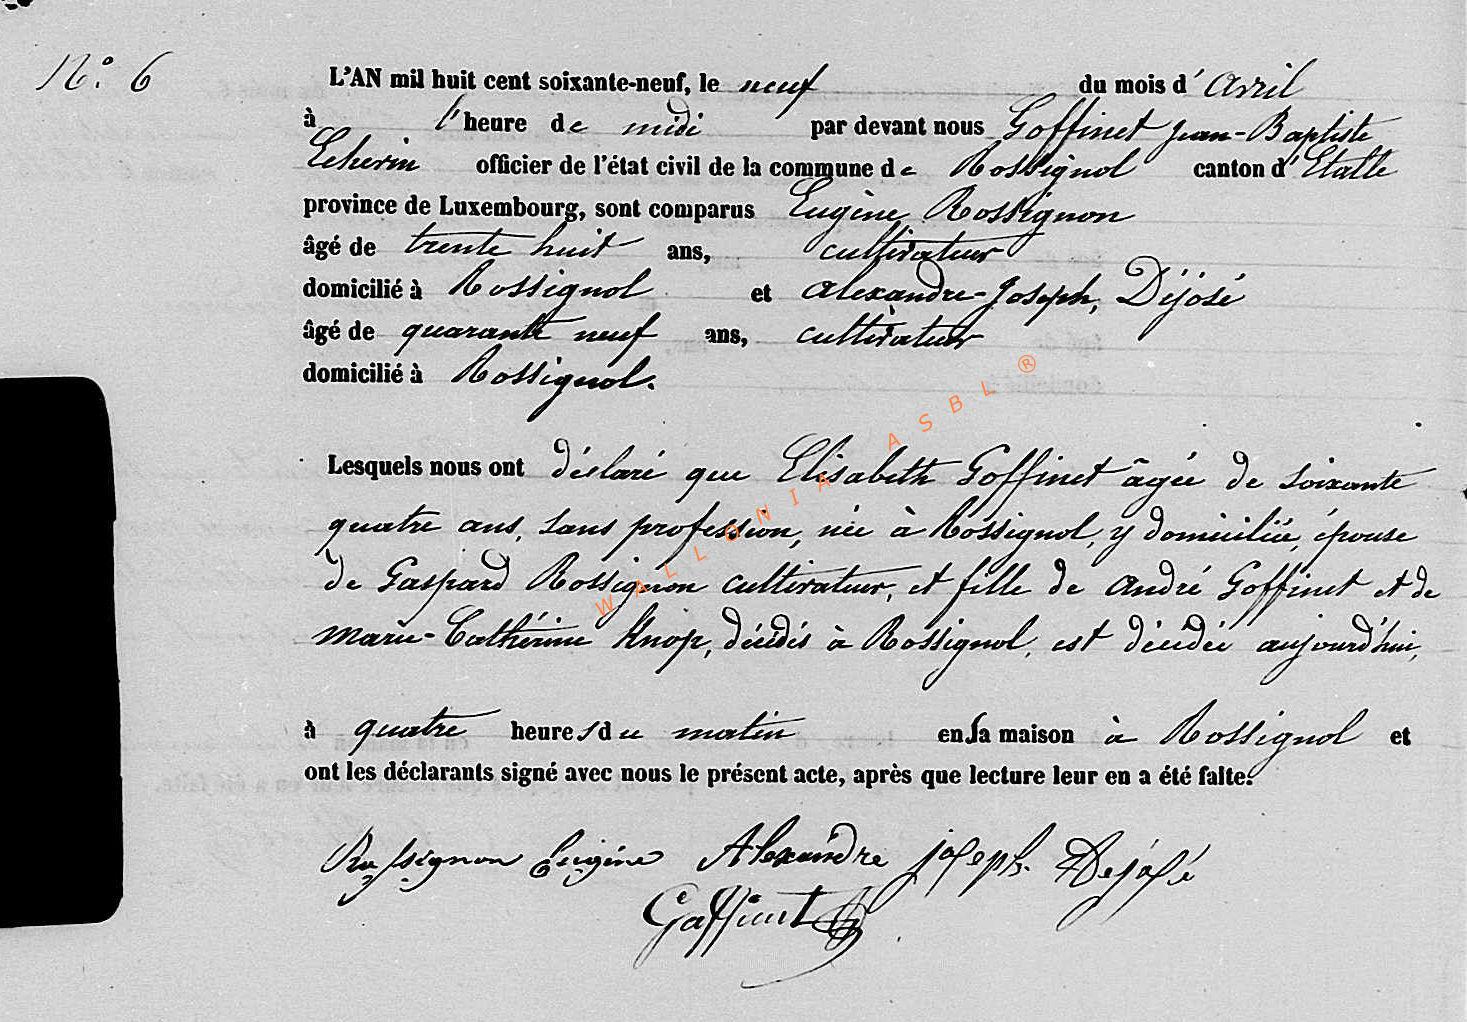 N°. 6
L'AN mil huit cent soixante-neuf, le neuf du mois d'Avril
à l'heure de midi par devant nous Goffinet Jean-Baptiste
Echevin officier de l'état civil de la commune de Rossignol canton d'Etalle
province de Luxembourg, sont comparus Eugène Rossignon
âgé de trente huit ans, cultivateur
domicilié à Rossignol et Alexandre-Joseph, Déjosé
âgé de quarante neuf ans, cultivateur
domicilié à Rossignol.
Lesquels nous ont déclaré que Elisabeth Goffinet âgée de soixante
quatre ans, sans profession, née à Rossignol, y domiciliée, épouse
de Gaspard Rossignon cultivateur, et fille de André Goffinet et de
Marie-Cathérine Knop, décédés à Rossignol, est décédée aujourd'hui,
à quatre heures du matin en sa maison à Rossignol et
ont les déclarants signé avec nous le présent acte, après que lecture leur en a été faite.
Rossignon Eugène Alexandre joseph. Dejosé
Goffinet
WALLONIA ASBL ®